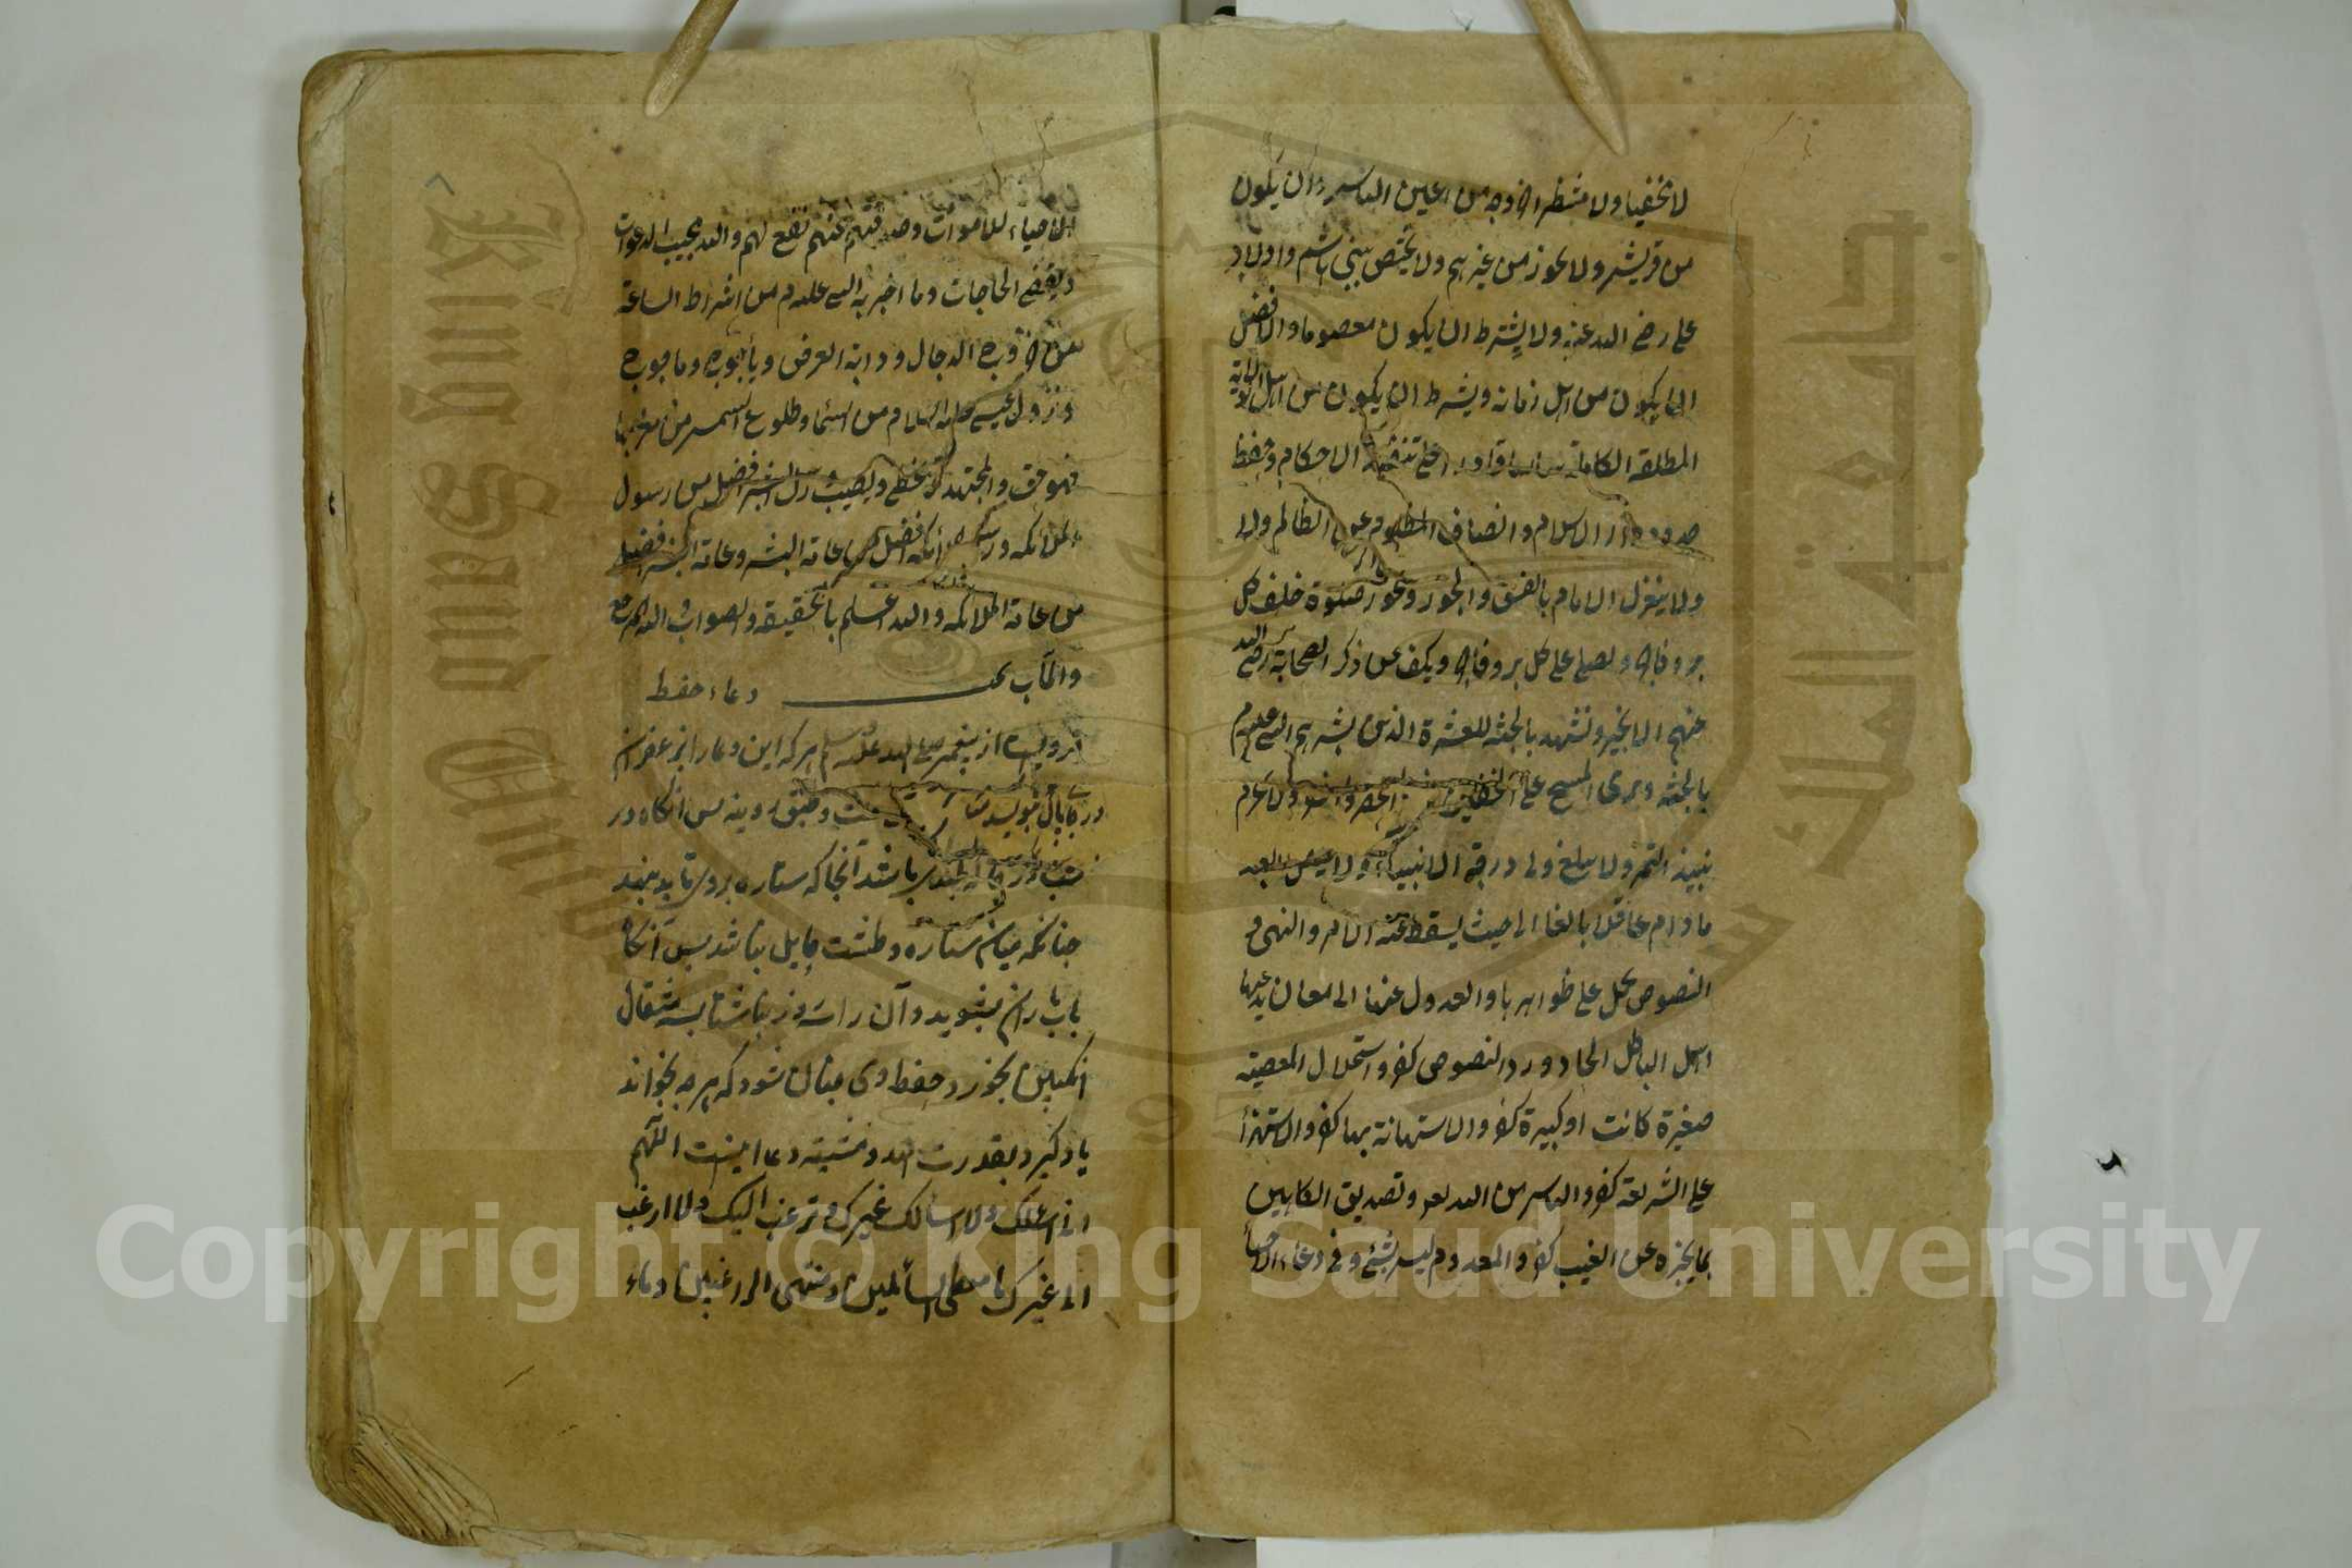 لا مختفيا ولا منتظرا خروجه من اعين الناس وان يكون
من قريش ولا يجوز من غيرهم ولا يختص ببني هاشم واولاد
علي رضي الله عنه ولا يشترط ان يكون معصوما والافضل
ان يكون من اهل زمانه ويشترط ان يكون من اهل الولاية
المطلقة الكاملة قادرا على تنفيذ الاحكام وحفظ
حدود دار الاسلام وانصاف المظلوم عن الظالم ولا
ولا ينعزل الامام بالفسق والجور ويجوز صلوة خلف كل
بر وفاجر ويصلي على كل بر وفاجر ويكف عن ذكر الصحابة رضي الله
عنهم الا بخير ونشهد بالجنة للعشرة الذين بشرهم النبي عليه السلام
بالجنة ونرى المسح على الخفين الحضر والسفر ولا نحرم
نبيذ التمر ولا يبلغ ولي درجة الانبياء ولا يصل العبد
ما دام عاقلا بالغا الى حيث يسقط عنه الامر والنهي و
النصوص تحمل على ظواهرها والعدول عنها الى معان يدعيها
اهل الباطل الحاد ورد النصوص كفر واستحلال المعصية
صغيرة كانت او كبيرة كفر والاستهانة بها كفر والاستهزأ
على الشريعة كفر والياس من الله كفر وتصديق الكاهن
بما يخبره عن الغيب كفر والمعدوم ليس بشئ وفي دعاء الاحيأ
الاحياء للاموات وصدقتهم عنهم نفع لهم والله مجيب الدعوات
ويقضي الحاجات وما اخبر به النبي عليه م من اشراط الساعة
من خروج الدجال ودابة الارض ويأجوج وماجوج
ونزول عيسى عليه السلام من السماء وطلوع الشمس من مغربها
فهو حق والمجتهد قد يخطئ ويصيب ورسل البشر افضل من رسول
الملائكه ورسل الملائكه افضل من عامة البشر وعامة البشر افضل
من عامة الملائكه والله اعلم بالحقيقة والصواب واليه المرجع
والمآب دعاء حفظ
مرويست از پيغمبر صلى الله عليه وسلم هر كه اين دعا را بزعفران
در نويسد
باشد آنجا كه ستاره بروى تابد بنهد
چنانكه ميان ستاره وطشت حايل نباشد پس آنكاه
بآب باران بشويد وآن را سه روز ناشتا بسه مثقال
انكبين بخورد حفظ وى چنان شود كه هرچه بخواند
ياد كيرد بقدرت الله ومشيته دعا اينست اللهم
اني اسئلك ولا اسالك غيرك وترغب اليك ولا ارغب
الى غيرك يا معطى السائلين ومنتهى الراغبين
Copyright © King Saud University